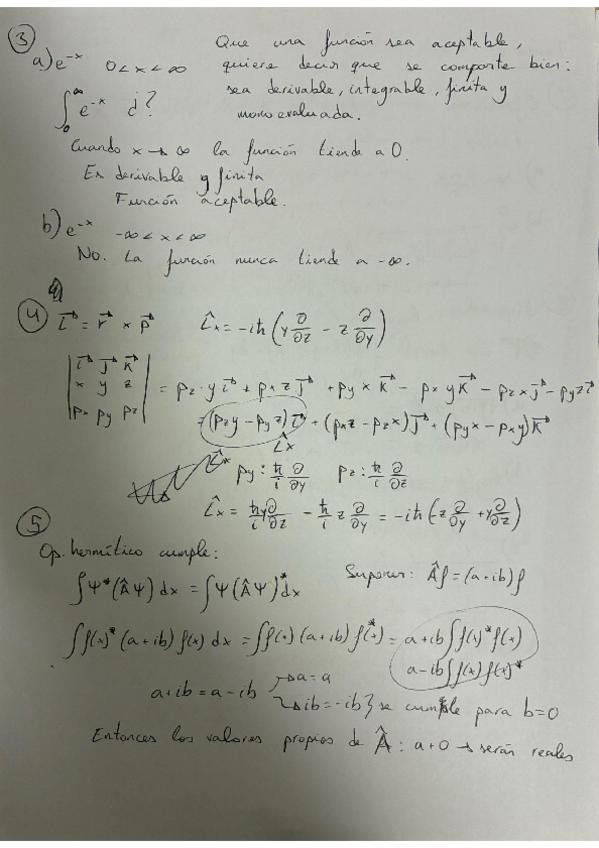 ③ Que una función sea aceptable,
a) e^-x 0 < x < ∞ quiere decir que se comporte bien:
sea derivable, integrable, finita y
∫₀^∞ e^-x ¿? monoevaluada.
Cuando x → ∞ la función tiende a 0.
Es derivable y finita
Función aceptable.
b) e^-x -∞ < x < ∞
No. La función nunca tiende a -∞.
④ L⃗ = r⃗ × p⃗ L̂x = -iħ (y ∂/∂z - z ∂/∂y)
| i⃗ j⃗ k⃗ |
| x y z | = pz·y i⃗ + px z j⃗ + py x k⃗ - px y k⃗ - pz x j⃗ - py z i⃗
| px py pz | = (pz y - py z) i⃗ + (px z - pz x) j⃗ + (py x - px y) k⃗
L̂x
L̂x py: ħ/i ∂/∂y pz: ħ/i ∂/∂z
L̂x = ħ/i y ∂/∂z - ħ/i z ∂/∂y = -iħ (z ∂/∂y + y ∂/∂z)
⑤
Op. hermítico cumple:
∫Ψ* (Â Ψ) dx = ∫Ψ (Â Ψ)* dx Suponer: Â f = (a+ib) f
∫f(x)* (a+ib) f(x) dx = ∫f(x) (a+ib) f(x)* = a+ib ∫f(x)* f(x)
a-ib ∫f(x) f(x)*
a+ib = a-ib → a = a
→ ib = -ib } se cumple para b=0
Entonces los valores propios de Â: a+0 → serán reales